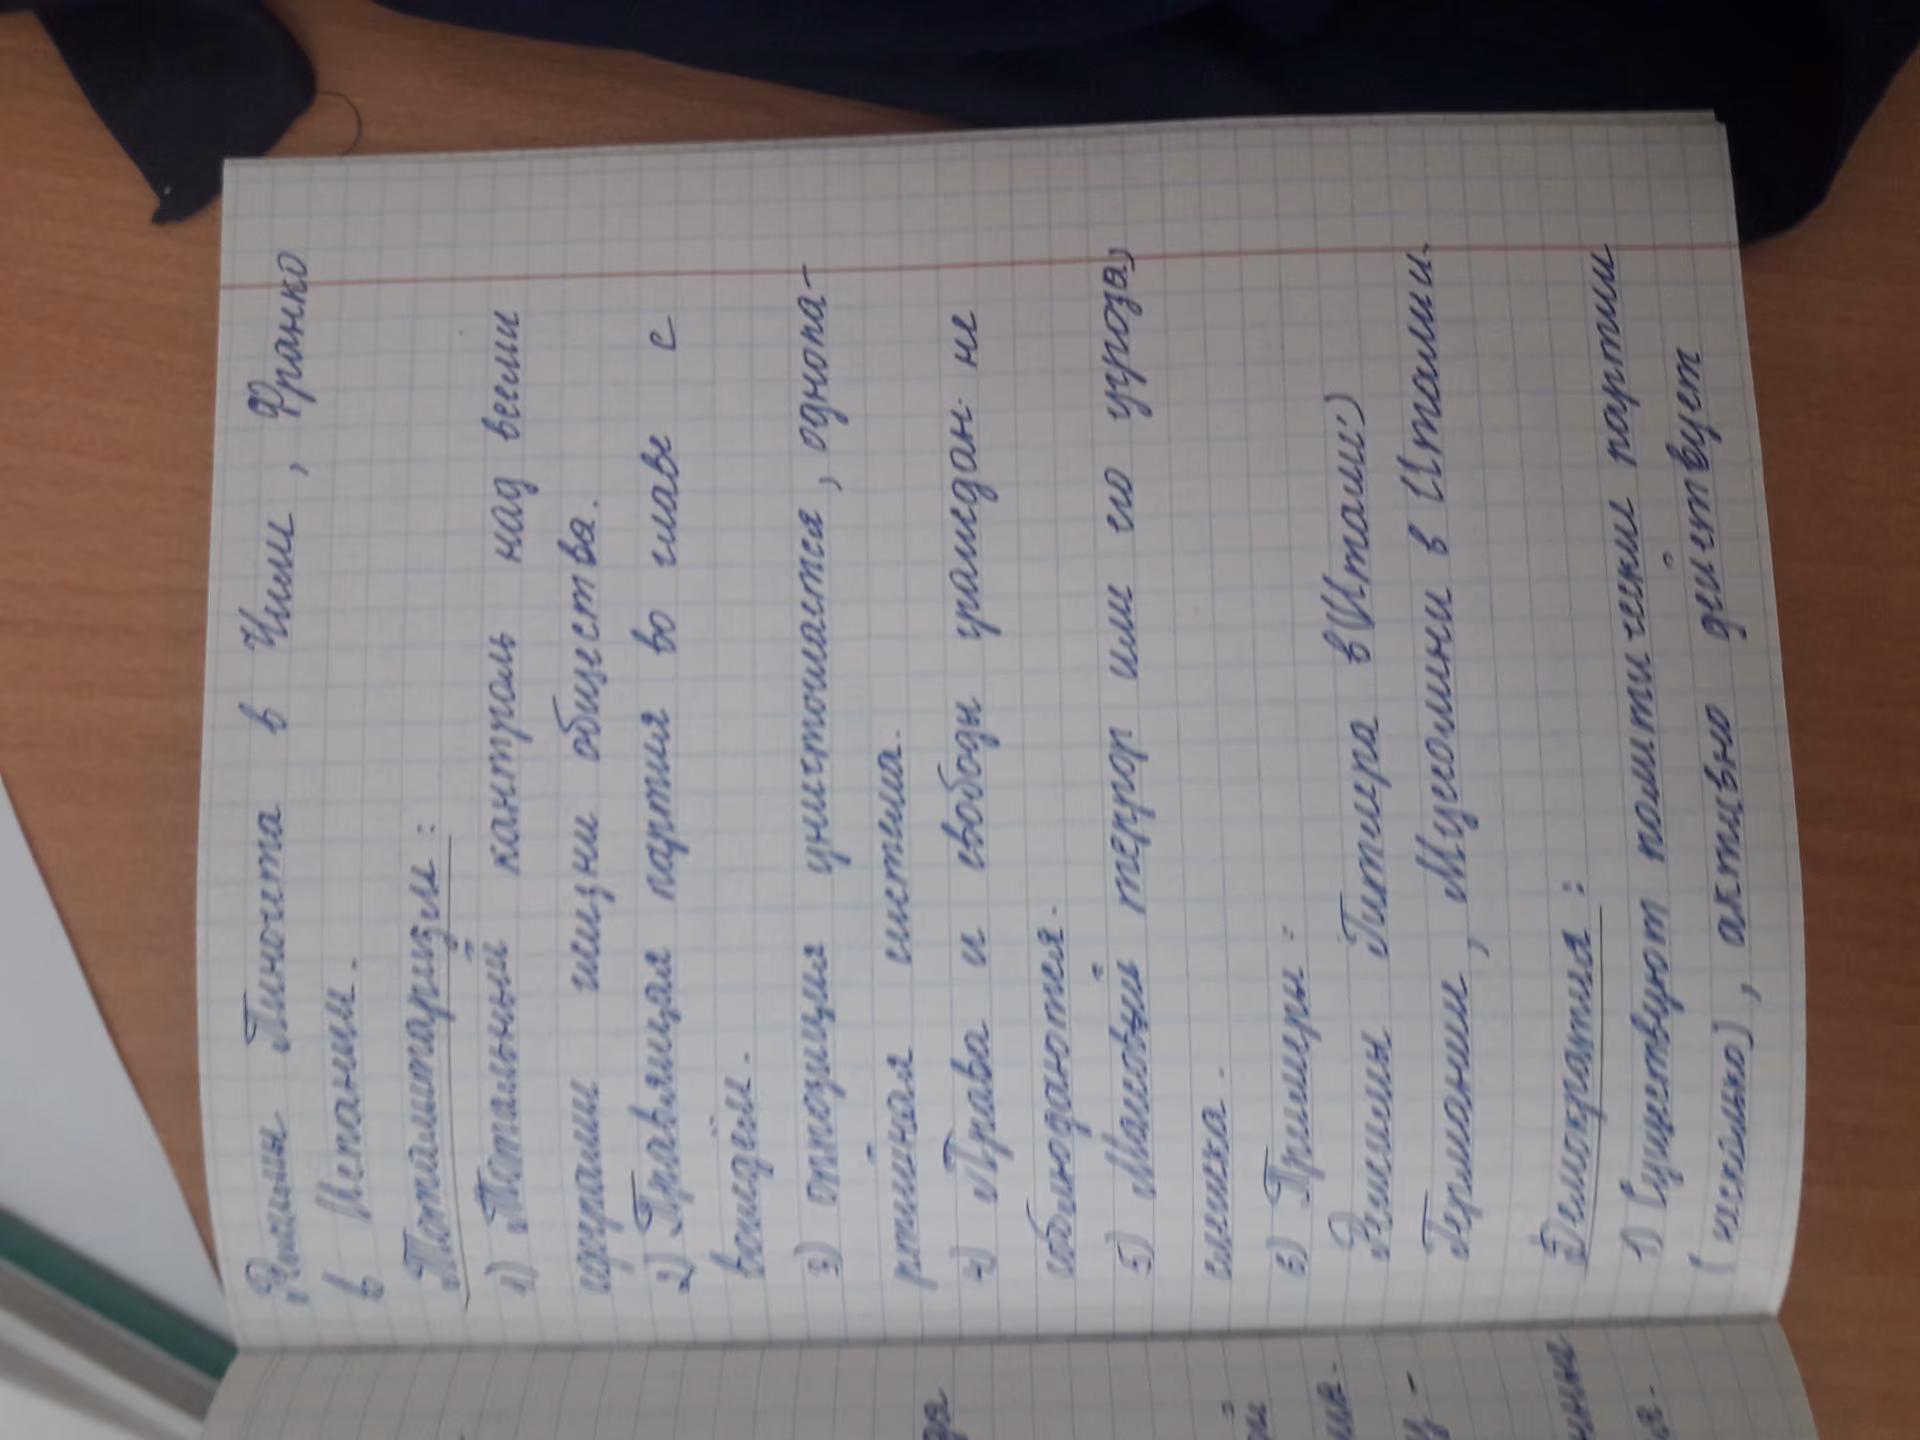 Режимы Пиночета в Чили, Франко
в Испании.
Тоталитаризм:
1) Тотальный кантроль над всеми
сферами жизни общества.
2) Правящая партия во главе с
вождём.
3) оппозиция уничтожается, однопа-
ртийная система.
4) Права и свободы граждан не
соблюдаются.
5) Массовый террор или его угроза,
слежка.
6) Примеры:
Режимы Гитлера в (Италии)
Германии, Мусолини в Италии.
Демократия:
1) Существуют политически партии
(несколько), активно действует
дя
ой
ия.
у-
нны
ия.